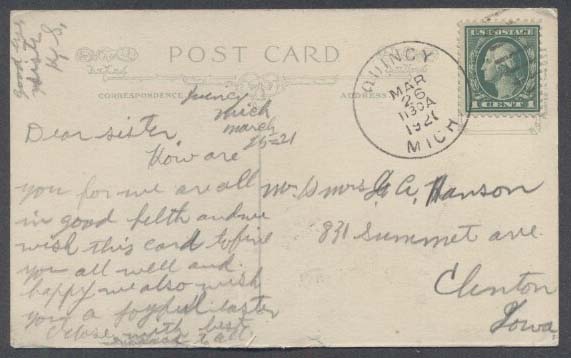 Good bye
Sister
H. S.
POST CARD
CORRESPONDENCE
ADDRESS
QUINCY
MAR
26
1130A
1921
MICH
U.S. POSTAGE
1 CENT 1
Quincy
Mich
march
25=21
Dear sister
How are
you for we are all
in good helth and we
wish this card to fine
you all well and
happy we also wish
you a joyful easter
Close with best
to all
Mr & mrs G A, Hanson
831 Summet ave
Clenton
Iowa